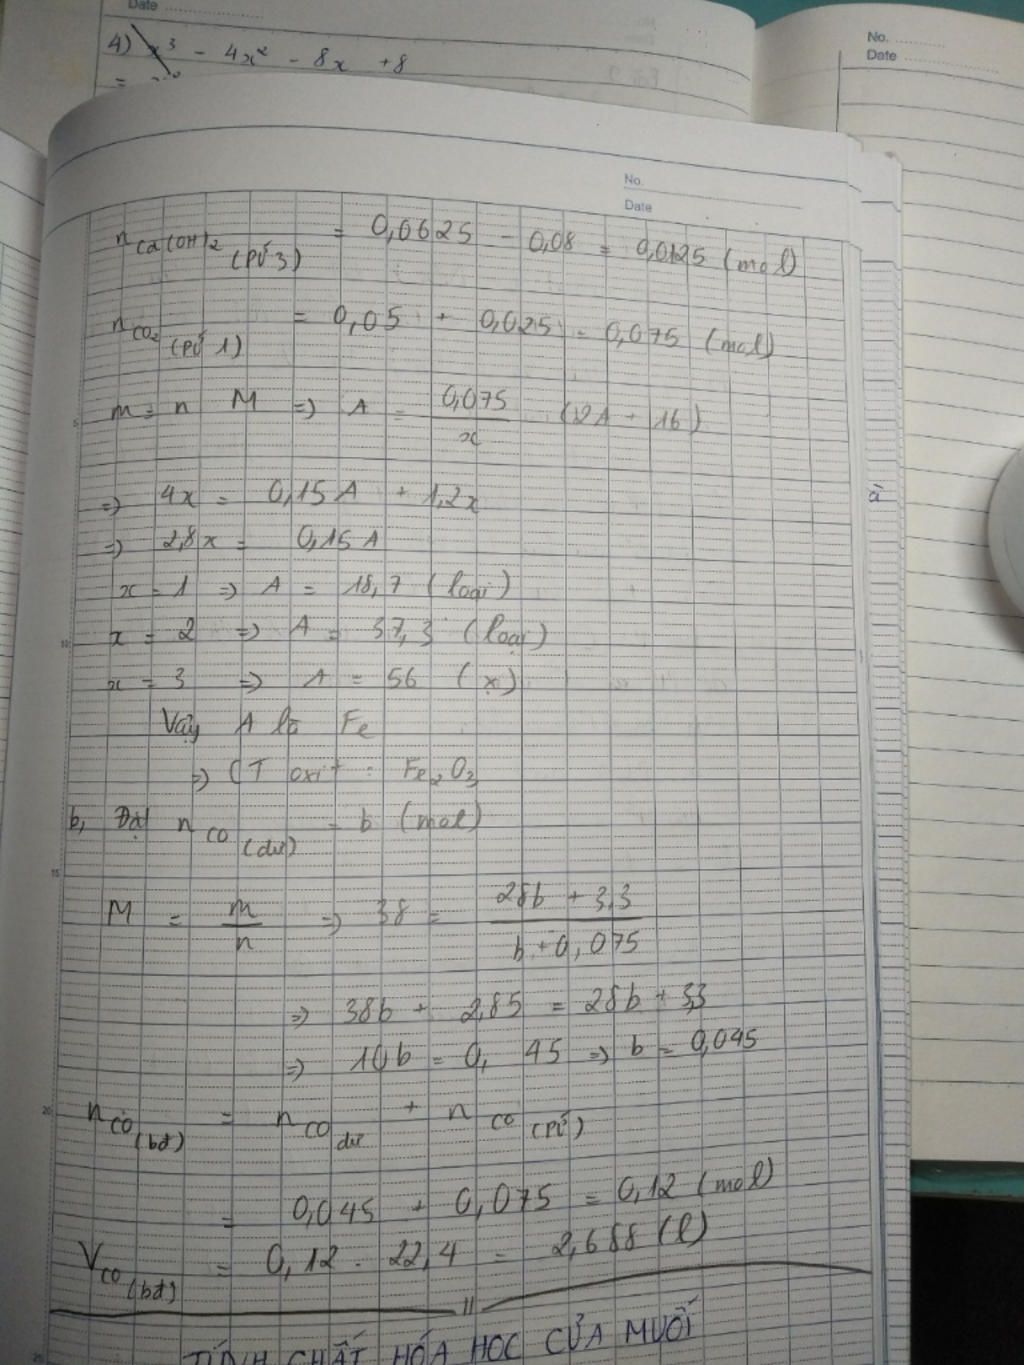 Date
4) x³ - 4x² - 8x + 8
=
No.
Date
No.
Date
n Ca(OH)₂ (PỨ 3) = 0,0625 - 0,08 = 0,0125 (mol)
n CO₂ (PỨ 1) = 0,05 + 0,025 = 0,075 (mol)
m = n M => A = 0,075/x (2A + 16)
=> 4x = 0,15A + 1,2x
=> 2,8x = 0,15A
x = 1 => A = 18,7 (loại)
x = 2 => A = 37,3 (loại)
x = 3 => A = 56 (x)
Vậy A là Fe
=> CT oxit : Fe₂O₃
b, Đặt n CO (dư) = b (mol)
M = m/n => 38 = (28b + 3,3)/(b + 0,075)
=> 38b + 2,85 = 28b + 3,3
=> 10b = 0,45 => b = 0,045
n CO (bđ) = n CO dư + n CO (PỨ)
= 0,045 + 0,075 = 0,12 (mol)
V CO (bđ) = 0,12 . 22,4 = 2,688 (l)
TÍNH CHẤT HÓA HỌC CỦA MUỐI